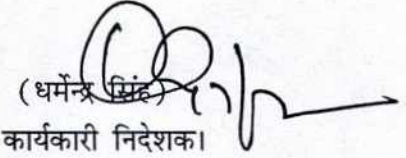 (धर्मेन्द्र सिंह)
कार्यकारी निदेशक।